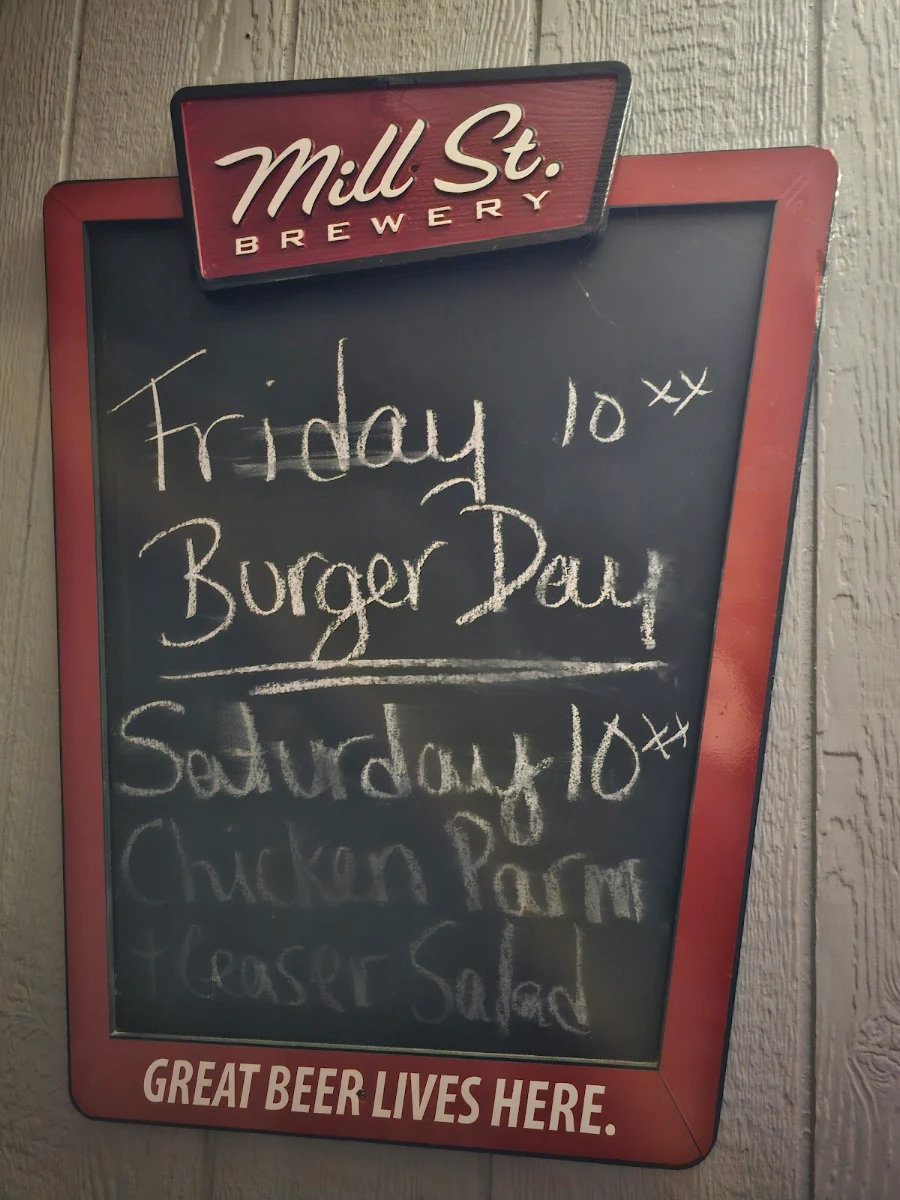 Mill St.
BREWERY
Friday 10xx
Burger Day
Saturday 10xx
Chicken Parm
+ Ceaser Salad
GREAT BEER LIVES HERE.